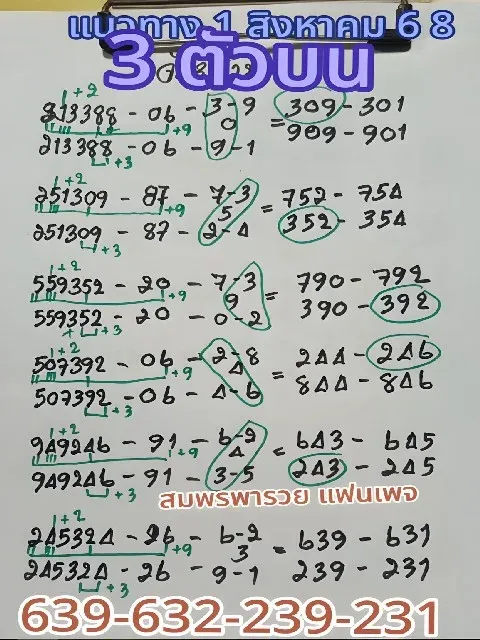 แนวทาง 1 สิงหาคม 68
3 ตัวบน
213388 - 06 - 3-9 = 309 - 301
0
213388 - 06 - 9-1 909 - 901
+2
+9
+3
251309 - 87 - 7-3 = 752 - 754
5
251309 - 87 - 2-4 352 - 354
+2
+9
+3
559352 - 20 - 7-3 = 790 - 792
9
559352 - 20 - 0-2 390 - 392
+2
+9
+3
507392 - 06 - 2-8 = 244 - 246
4
507392 - 06 - 4-6 844 - 846
+2
+9
+3
949246 - 91 - 6-2 = 643 - 645
4
949246 - 91 - 3-5 243 - 245
+2
+9
+3
สมพรพารวย แฟนเพจ
245324 - 26 - 6-2 = 639 - 631
3
245324 - 26 - 9-1 239 - 231
+2
+9
+3
639-632-239-231